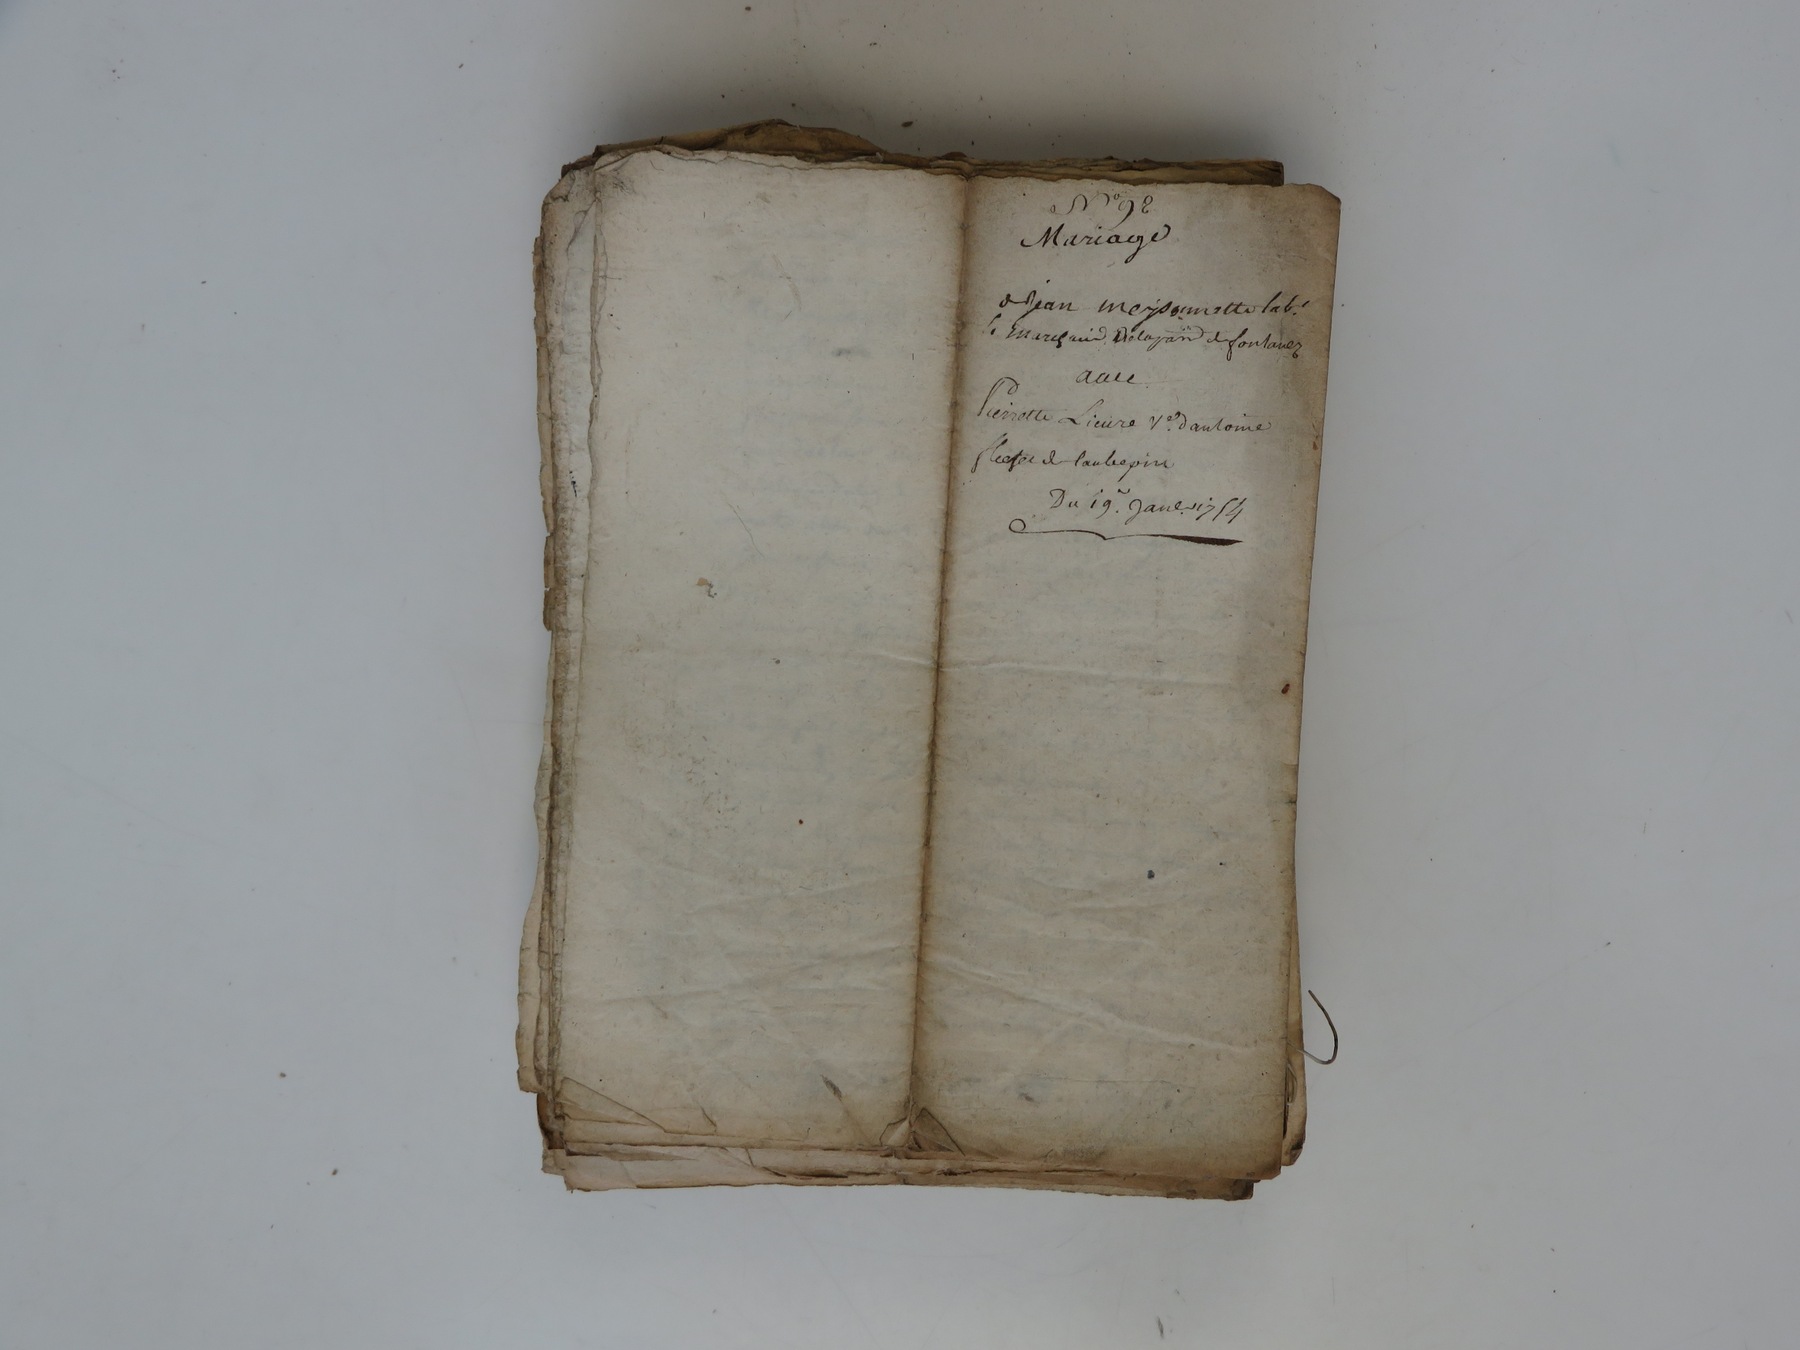 N° 98
Mariage
de Jean meysonnette lab.r
& marchand de fontanez
avec
Pierrotte Lieure v.e d'antoine
de laubepin
Du 19.e Janv.r 1754